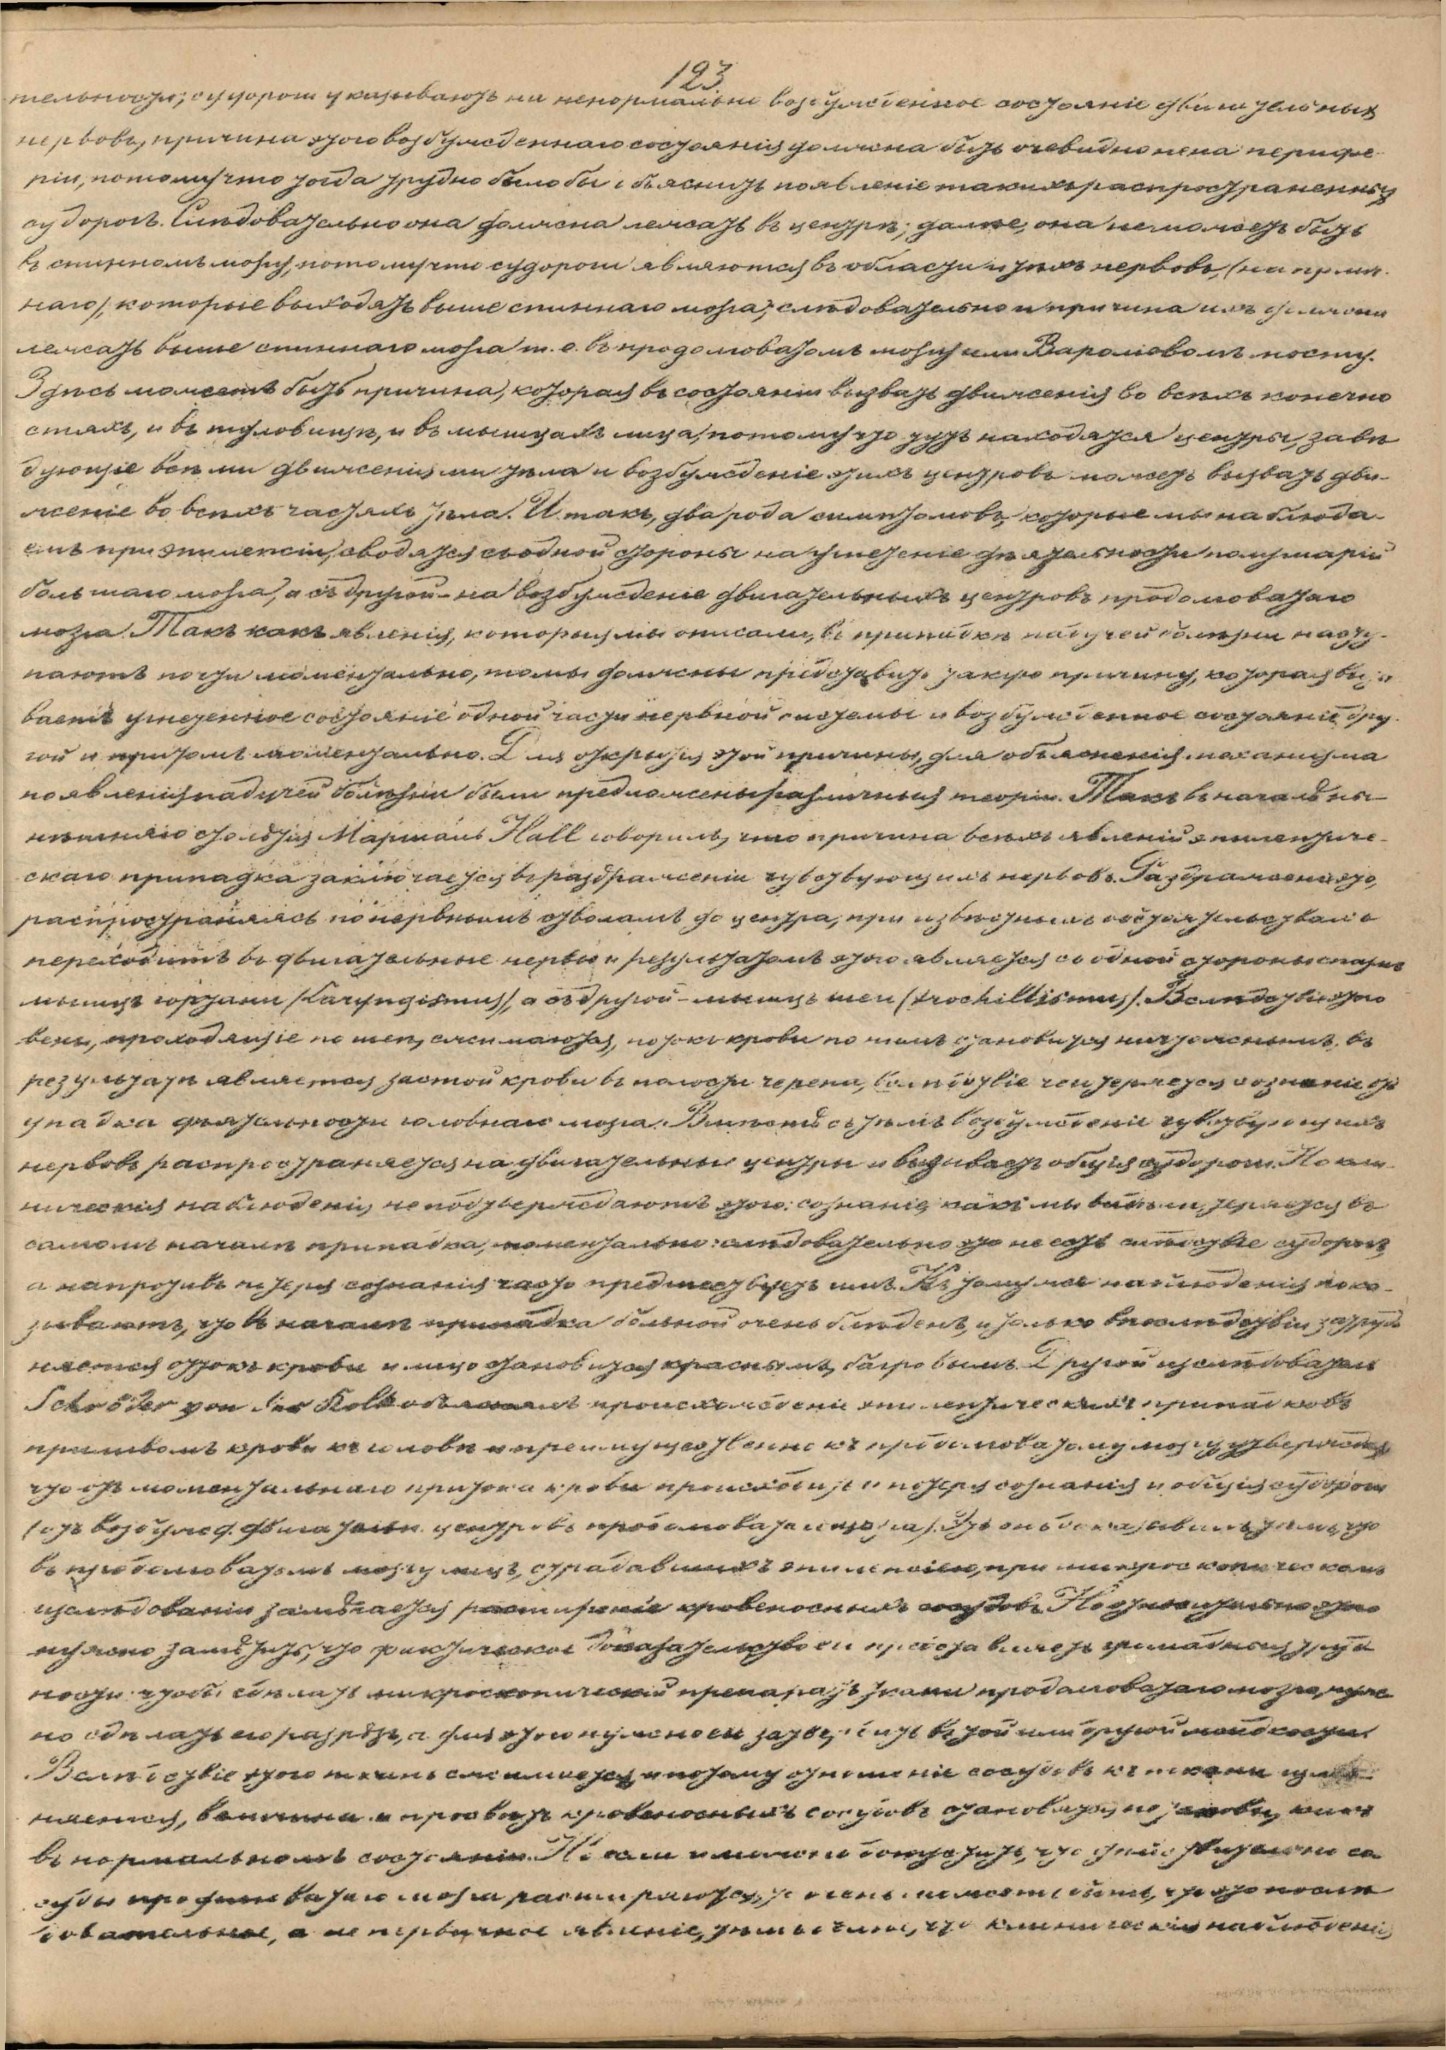 123
тельности; судороги указываютъ на ненормально возбужденное состоянiе двигательныхъ
нервовъ, причина этого возбужденнаго состоянiя должна быть очевидно не на перифе-
рiи, потому что тогда трудно было бы объяснить появленiе такихъ распространенныхъ
судорогъ. Слѣдовательно она должна лежать въ центрѣ; далѣе, она не можетъ быть
въ спинномъ мозгу, потому что судороги являются въ области и тѣхъ нервовъ, (
наго), которые выходятъ выше спиннаго мозга; слѣдовательно и причина ихъ должна
лежать выше спиннаго мозга т. е. въ продолговатомъ мозгу или Варолiевомъ мосту.
Здѣсь можетъ быть причина, которая въ состоянiи вызвать движенiя во всѣхъ конечно
стяхъ, и въ туловищѣ, и въ мышцахъ лица, потому что тутъ находятся центры, завѣ
дующiе всѣми движенiями тѣла и возбужденiе этихъ центровъ можетъ вызвать дви-
женiе во всѣхъ частяхъ тѣла. И такъ, два рода симптомовъ, которые мы наблюда-
емъ при эпилепсiи, сводятся съ одной стороны на угнетенiе дѣятельности полушарiй
большаго мозга, а съ другой – на возбужденiе двигательныхъ центровъ продолговатаго
мозга. Такъ какъ явленiя, которыя мы описали, въ припадкѣ падучей болѣзни насту-
паютъ почти моментально, то мы должны представить такую причину, которая вызы
ваетъ угнетенное состоянiе одной части нервной системы и возбужденное состоянiе дру-
гой и притомъ моментально. Для открытiя этой причины, для объясненiя механизма
появленiя падучей болѣзни были предложены различныя теорiи. Такъ въ началѣ ны-
нѣшняго столѣтiя Маршаль Hall говорилъ, что причина всѣхъ явленiй эпилептиче-
скаго припадка заключается въ раздраженiи чувствующихъ нервовъ. Раздраженiе это,
распространяясь по нервнымъ стволамъ до центра, при извѣстныхъ обстоятельствахъ
переходитъ въ двигательные нервы и результатомъ этого является съ одной стороны спазмъ
мышцъ гортани (Laryngismus), а съ другой – мышцъ шеи (trochillismus). Вслѣдствiе этого
вены, проходящiе по шеѣ, сжимаются, потокъ крови по нимъ становится ничтожнымъ, въ
результатѣ является застой крови въ полости черепа, вслѣдствiе чего теряется сознанiе отъ
упадка дѣятельности головнаго мозга. Вмѣстѣ съ тѣмъ возбужденiе чувствующихъ
нервовъ распространяется на двигательныя центры и вызываетъ общiя судороги. Но кли-
ническiя наблюденiя не подтверждаютъ этого: сознанiе, какъ мы видѣли, теряется въ
самомъ началѣ припадка, моментально: слѣдовательно это не есть слѣдствiе судорогъ,
а напротивъ потеря сознанiя часто предшествуетъ имъ. Къ тому же наблюденiя пока-
зываютъ, что въ началѣ припадка больной очень блѣденъ, и только впослѣдствiи затруд
няется отокъ крови и лицо становится краснымъ, багровымъ. Другой изслѣдователь
Schröder von der Kolk объяснялъ происхожденiе эпилептическихъ припадковъ
приливомъ крови къ головѣ и преимущественно къ продолговатому мозгу, утверждая
что отъ моментальнаго притока крови происходитъ и потеря сознанiя и общiя судороги
(отъ возбужд. двигательн. центровъ продолговатаго мозга). Это онъ доказывалъ тѣмъ, что
въ продолговатомъ мозгу лицъ, страдавшихъ эпилепсiею, при микроскопическомъ
изслѣдованiи замѣчается расширенiе кровеносныхъ сосудовъ. Относительно этого
нужно замѣтить, что фактическое доказательство си представляетъ громадныя трудн
ности: чтобы сдѣлать микроскопическiй препаратъ ткани продолговатаго мозга, нуж
но сдѣлать его разрѣзъ, а для этого нужно его затвердить въ той или другой жидкости.
Вслѣдствiе этого ткань сжимается, и потому отношенiе сосудовъ къ ткани измѣ-
няется, величина и просвѣтъ кровеносныхъ сосудовъ становятся не таковы, какъ
въ нормальномъ состоянiи. Но если и можно допустить, что дѣйствительно со
суды продолговатаго мозга расширяются, то очень можетъ быть, что это послѣ
довательное, а не первичное явленiе, тѣмъ болѣе, что клиническiя наблюденiя